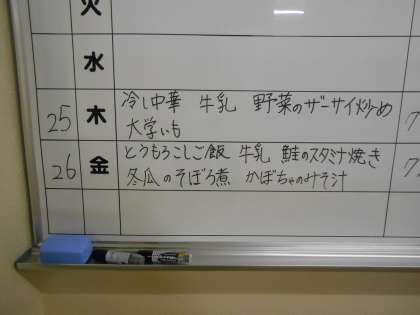 火
水
25 木 冷し中華 牛乳 野菜のザーサイ炒め
大学いも
26 金 とうもろこしご飯 牛乳 鮭のスタミナ焼き
冬瓜のそぼろ煮 かぼちゃのみそ汁